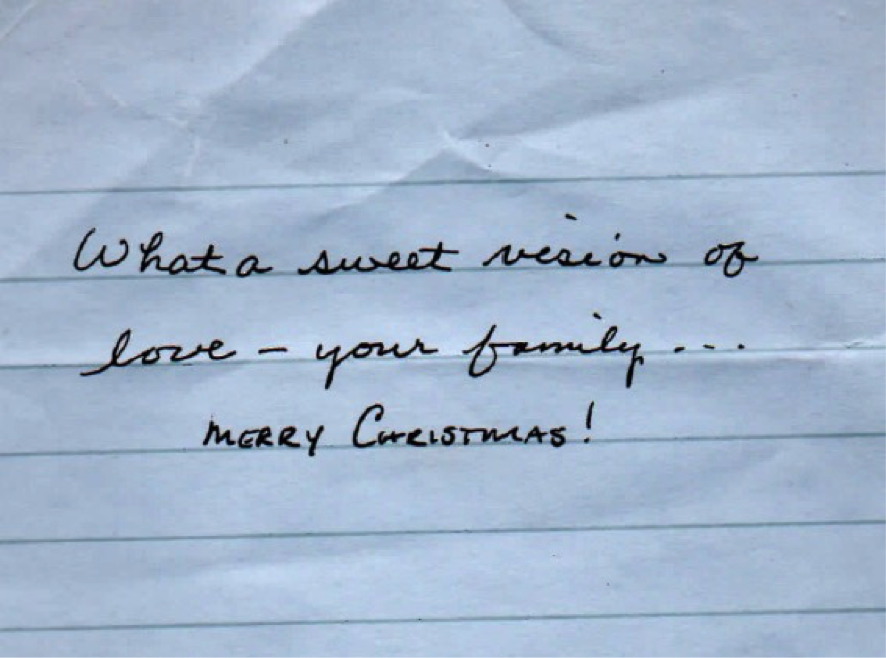 What a sweet vision of
love - your family...
MERRY CHRISTMAS!